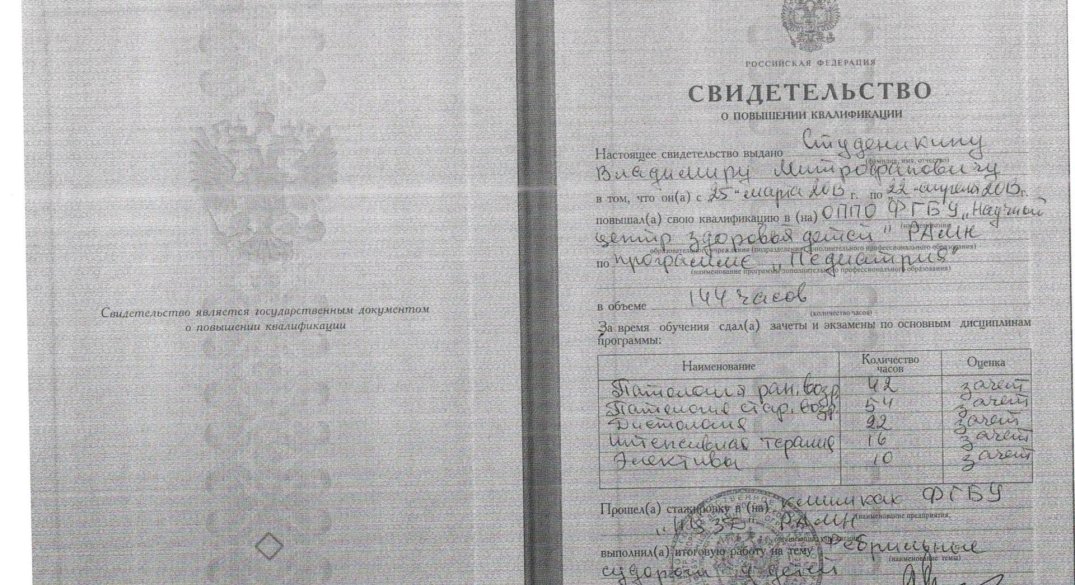 Свидетельство является государственным документом
о повышении квалификации
РОССИЙСКАЯ ФЕДЕРАЦИЯ
СВИДЕТЕЛЬСТВО
О ПОВЫШЕНИИ КВАЛИФИКАЦИИ
Настоящее свидетельство выдано Студеникину
(фамилия, имя, отчество)
Владимиру Митрофановичу
в том, что он(а) с 25 " марта 2013 г. по 22 апреля 2013 г.
повышал(а) свою квалификацию в (на) ОППО ФГБУ „Научный
(наименование
центр здоровья детей" РАМН
образовательного учреждения (подразделения) дополнительного профессионального образования)
по программе „Педиатрия"
(наименование программы дополнительного профессионального образования)
в объеме 144 часов
(количество часов)
За время обучения сдал(а) зачеты и экзамены по основным дисциплинам
программы:
Наименование Количество часов Оценка
Патология ран. возр 42 зачет
Патология стар. возр. 54 зачет
Диетология 22 зачет
Интенсивная терапия 16 зачет
Элективы 10 зачет
Прошел(а) стажировку в (на) клиниках ФГБУ
(наименование предприятия,
„НЦЗД" РАМН
выполнил(а) итоговую работу на тему Фебрильные
(наименование темы)
судороги у детей